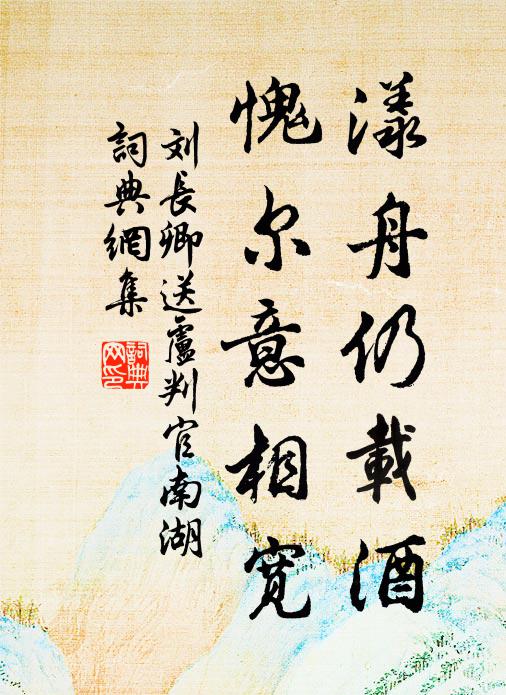 漾舟仍載酒
愧尔意相宽
刘長卿送盧判官南湖
詞典網集
詞典網印